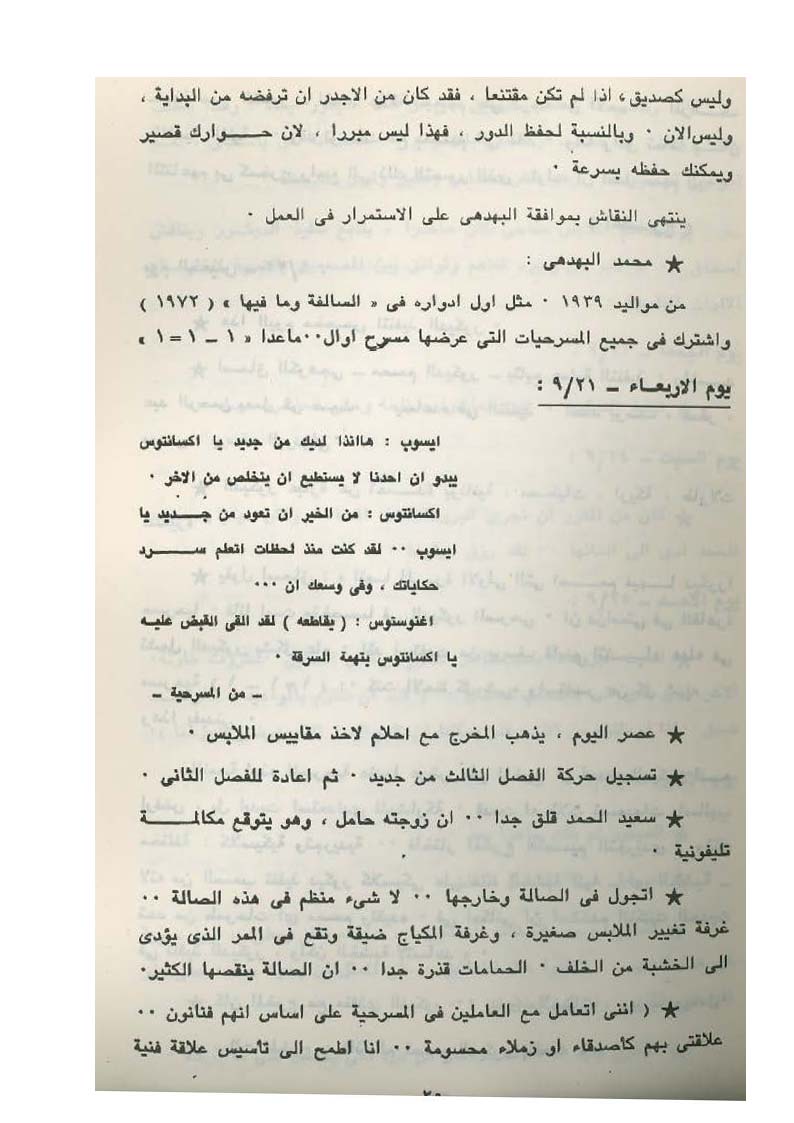 وليس كصديق، اذا لم تكن مقتنعا ، فقد كان من الاجدر ان ترفضه من البداية ،
وليس الان ٠ وبالنسبة لحفظ الدور ، فهذا ليس مبررا ، لان حـــوارك قصير
ويمكنك حفظه بسرعة ٠
ينتهى النقاش بموافقة البهدهى على الاستمرار فى العمل ٠
★ محمد البهدهى :
من مواليد ١٩٣٩ ٠ مثل اول ادواره فى « السالفة وما فيها » ( ١٩٧٢ )
واشترك فى جميع المسرحيات التى عرضها مسرح اوال٠٠ماعدا « ١ ـ ١ = ١ »
يوم الاربعـاء ـ ٩/٢١ :
ايسوب : هاانذا لديك من جديد يا اكسانتوس
يبدو ان احدنا لا يستطيع ان يتخلص من الاخر ٠
اكسانتوس : من الخير ان تعود من جـــديد يا
ايسوب ٠٠ لقد كنت منذ لحظات اتعلم ســــرد
حكاياتك ، وفى وسعك ان ٠٠٠
اغنوستوس : ( يقاطعه ) لقد القى القبض عليه
يا اكسانتوس بتهمة السرقة ٠
ـ من المسرحية ـ
★ عصر اليوم ، يذهب المخرج مع احلام لاخذ مقاييس الملابس ٠
★ تسجيل حركة الفصل الثالث من جديد ٠ ثم اعادة للفصل الثانى ٠
★ سعيد الحمد قلق جدا ٠٠ ان زوجته حامل ، وهو يتوقع مكالمـــــة
تليفونية ٠
★ اتجول فى الصالة وخارجها ٠٠ لا شىء منظم فى هذه الصالة ٠٠
غرفة تغيير الملابس صغيرة ، وغرفة المكياج ضيقة وتقع فى الممر الذى يؤدى
الى الخشبة من الخلف ٠ الحمامات قذرة جدا ٠٠ ان الصالة ينقصها الكثير٠
★ ( اننى اتعامل مع العاملين فى المسرحية على اساس انهم فنانون ٠٠
علاقتى بهم كأصدقاء او زملاء محسومة ٠٠ انا اطمح الى تأسيس علاقة فنية